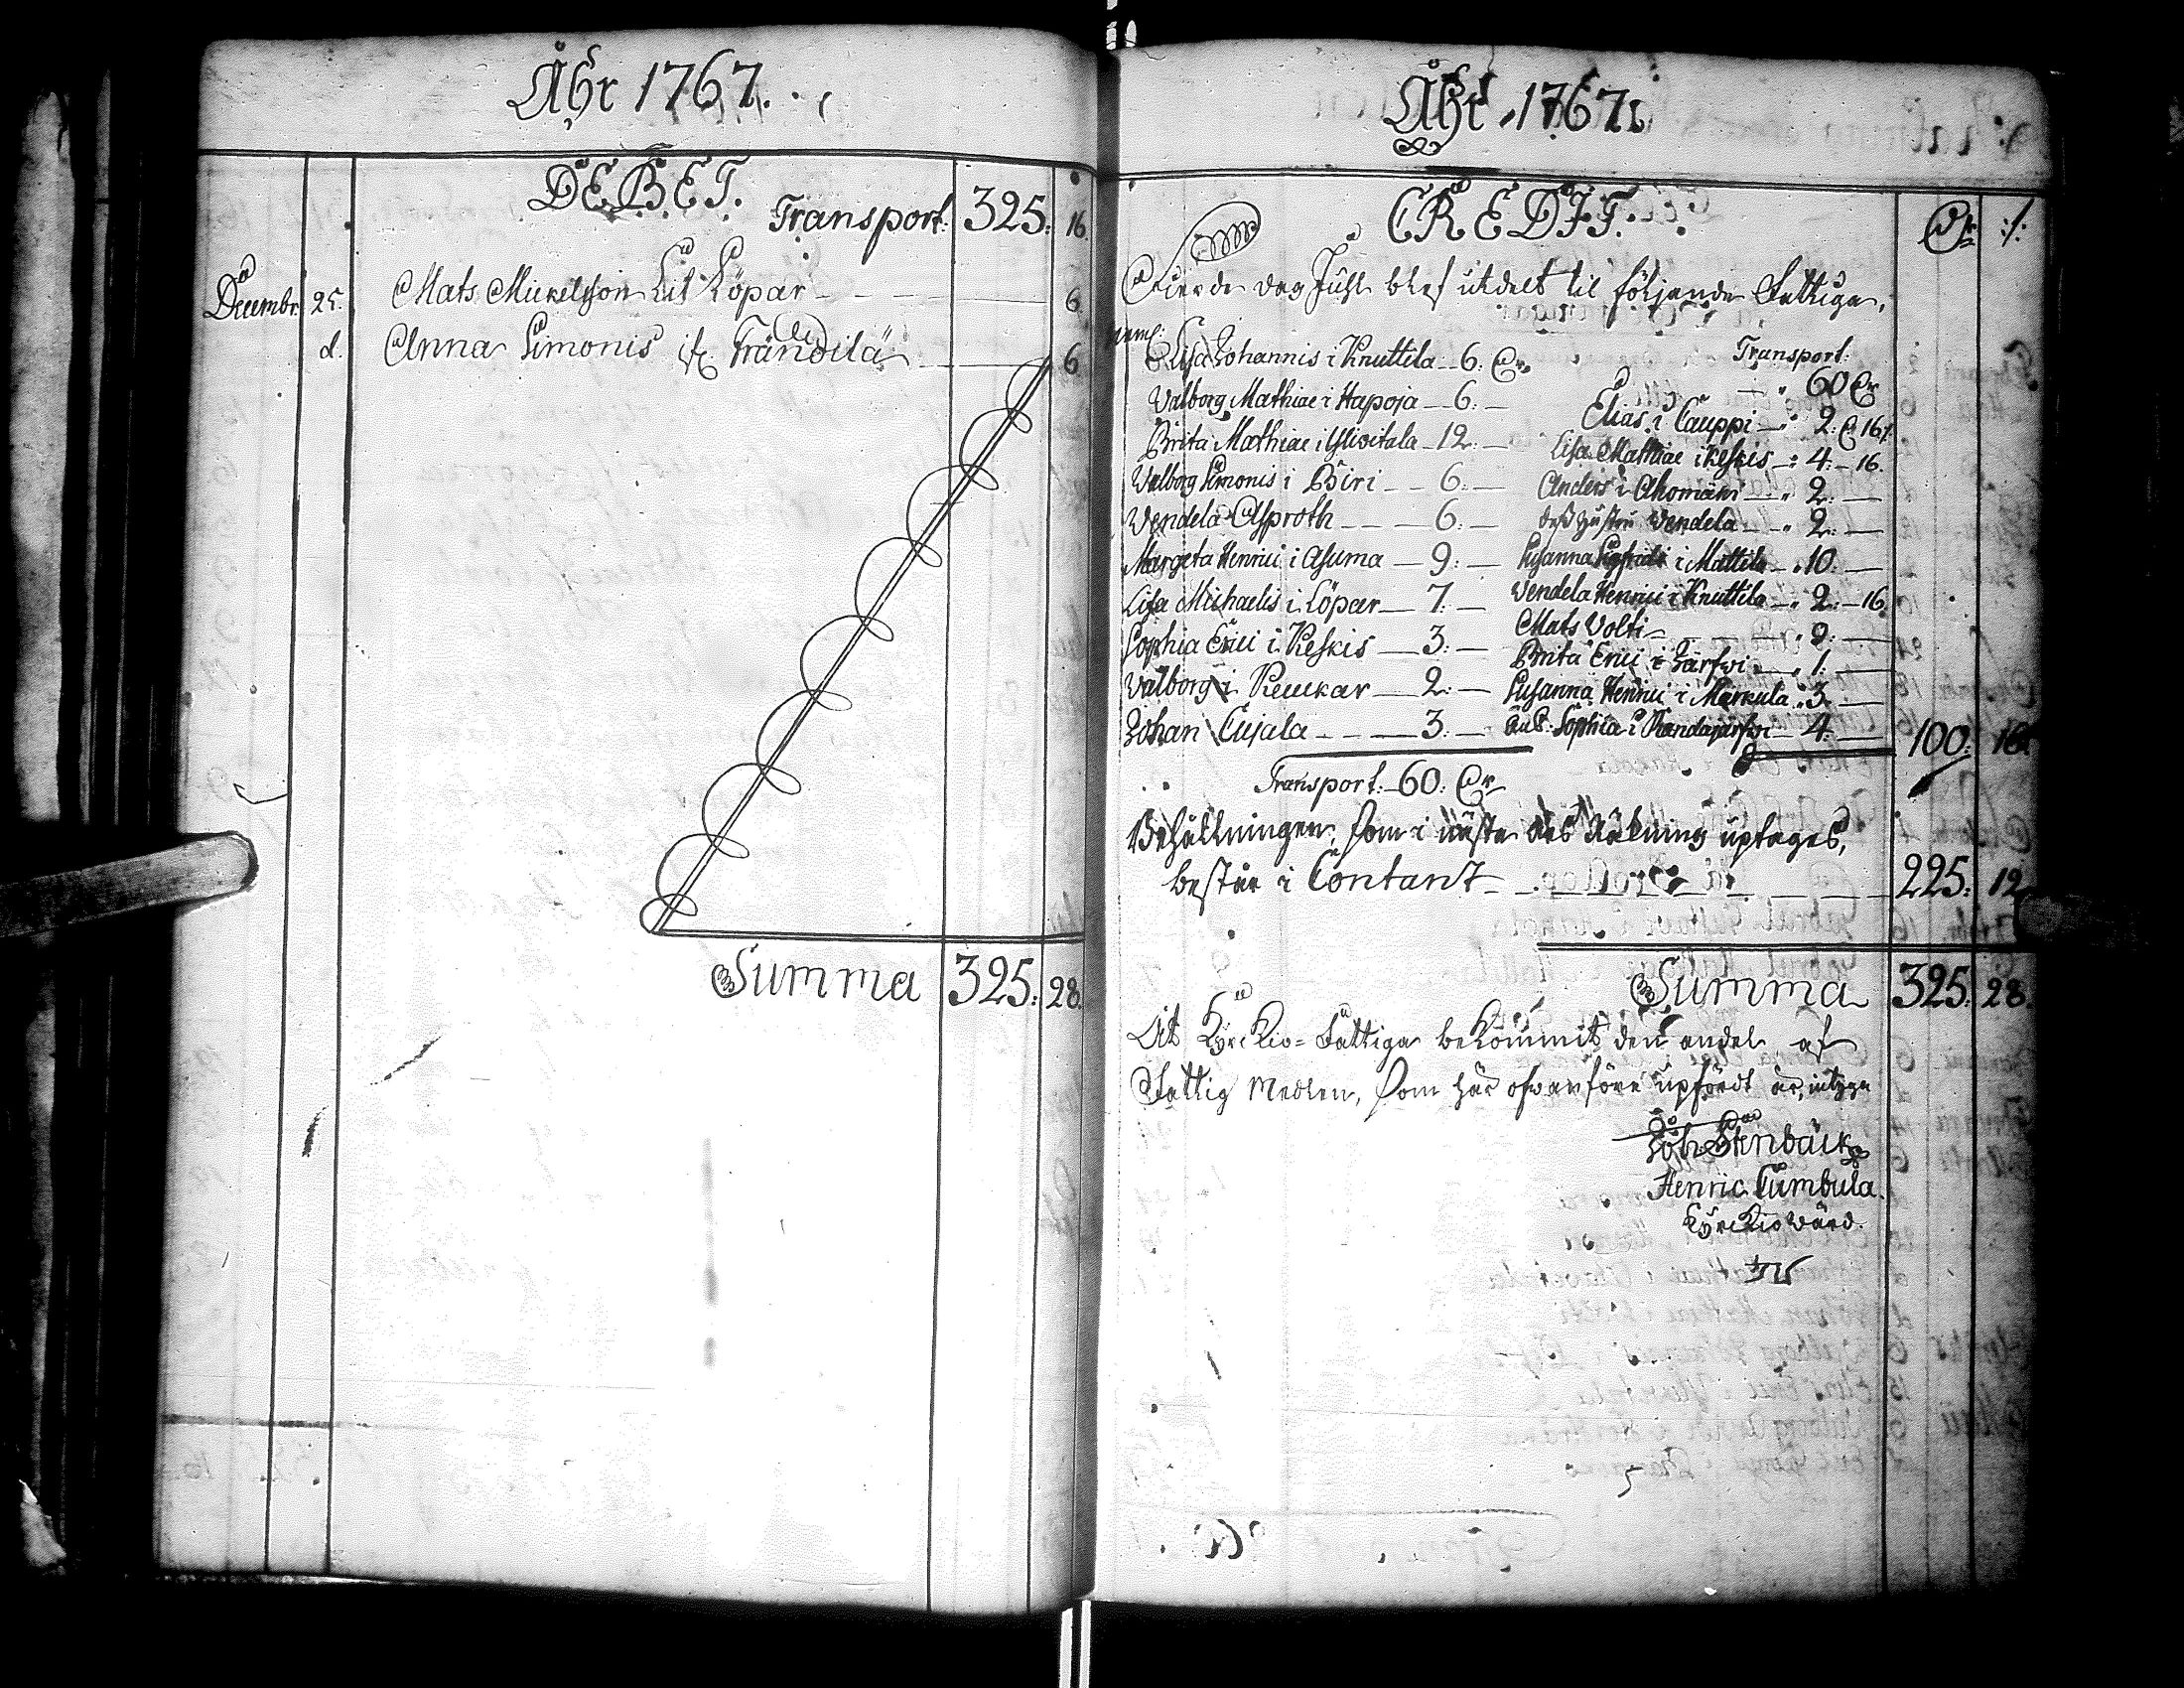 Åhr 1767.
DEBET.
Transport: 325: 16.
Decembr. 25. Mats Mickelsson Lill Löpar 6
d. Anna Simonis 6
Summa 325: 28.
Åhr 1767.
CREDIT.
Fierde dag Juhl blef utdelt til följande Fattiga,
neml:
Lisa Johannis i Knuttila 6:
Valborg Mathiae i Hapoja 6:
Brita Mathiae i Yliwitala 12:
Walborg Simonis i Biri 6:
Vendela Asproth 6:
Margeta Henrici i Asuma 9:
Lisa Michaelis i Löpar 7:
Sophia Erici i Keskis 3:
Valborg i Keuckar 2:
Johan Cujala 3:
Transport: 60:
Transport:
60
Elias i Cauppi 2: 16
Lisa Matthiae i Keskis 4: 16.
Anders i Ahomäki 2:
dess hustru Vendela 2:
Susanna i Mattila 10:
Vendela Henrici i Knuttila 2: 16
Mats Volti 2:
Brita Erici i Järfwi 1:
Susanna Henrici i Markula 3
Sophia i Kandajärfwi 4:
100: 16
Behållningen, som i nästa års Räkning uptages,
består i Contant 225: 12
Summa 325: 28.
At Kyrckio-Fattiga bekommit den andel af
Fattig Medlen, som här ofwanföre upfördt är, intyga
Joh: Stenbäck
Henric Cumbula.
Kyrckiowärd.